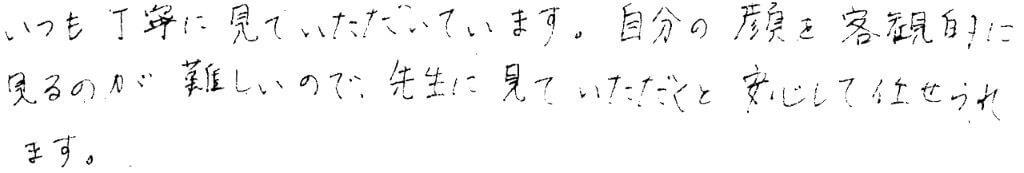 いつも丁寧に見ていただいています。自分の顔を客観的に
見るのが難しいので、先生に見ていただくと安心して任せられ
ます。